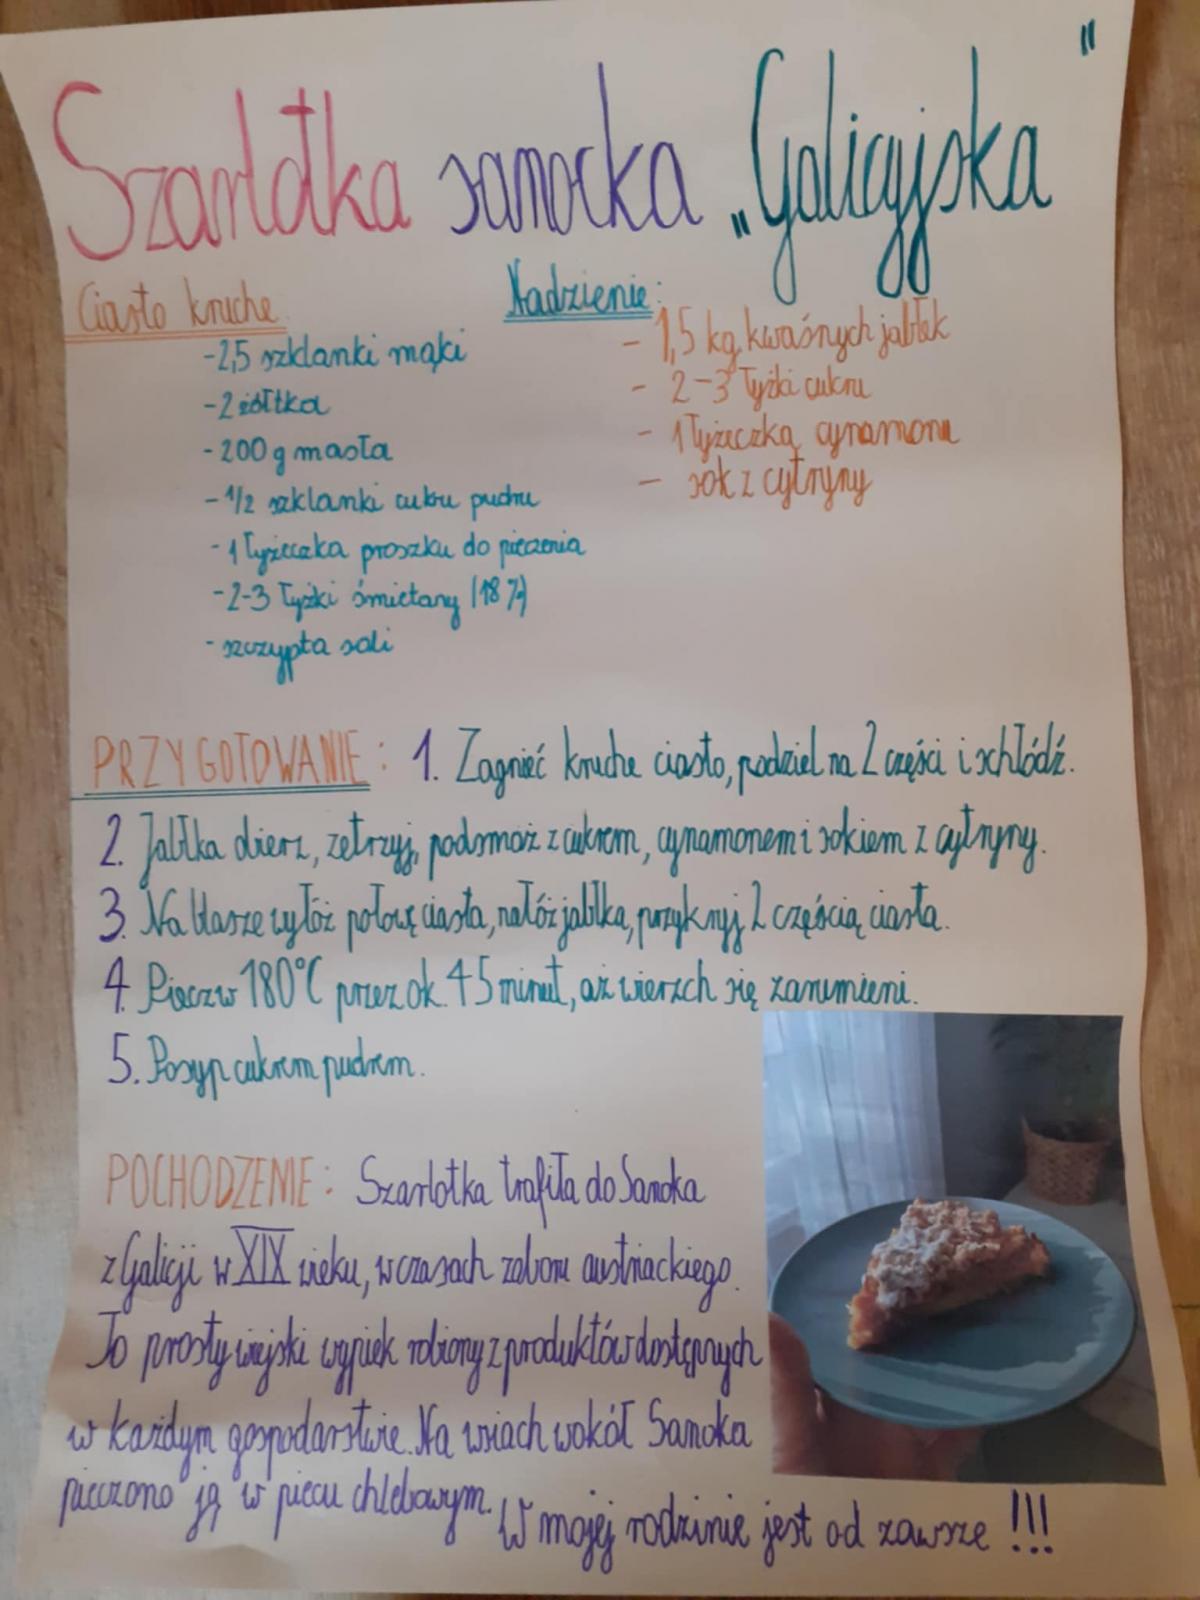 Szarlotka sanocka „Galicyjska"
Ciasto kruche
-2,5 szklanki mąki
-2 żółtka
-200 g masła
-1/2 szklanki cukru pudru
-1 łyżeczka proszku do pieczenia
-2-3 łyżki śmietany (18%)
-szczypta soli
Nadzienie:
- 1,5 kg kwaśnych jabłek
- 2-3 łyżki cukru
- 1 łyżeczka cynamonu
- sok z cytryny
PRZYGOTOWANIE: 1. Zagnieć kruche ciasto, podziel na 2 części i schłódź.
2. Jabłka obierz, zetrzyj, podsmaż z cukrem, cynamonem i sokiem z cytryny.
3. Na blasze wyłóż połowę ciasta, nałóż jabłka, przykryj 2 częścią ciasta.
4. Piecz w 180°C przez ok. 45 minut, aż wierzch się zarumieni.
5. Posyp cukrem pudrem.
POCHODZENIE: Szarlotka trafiła do Sanoka
z Galicji w XIX wieku, w czasach zaboru austriackiego.
To prosty wiejski wypiek robiony z produktów dostępnych
w każdym gospodarstwie. Na wsiach wokół Sanoka
pieczono ją w piecu chlebowym.
W mojej rodzinie jest od zawsze !!!